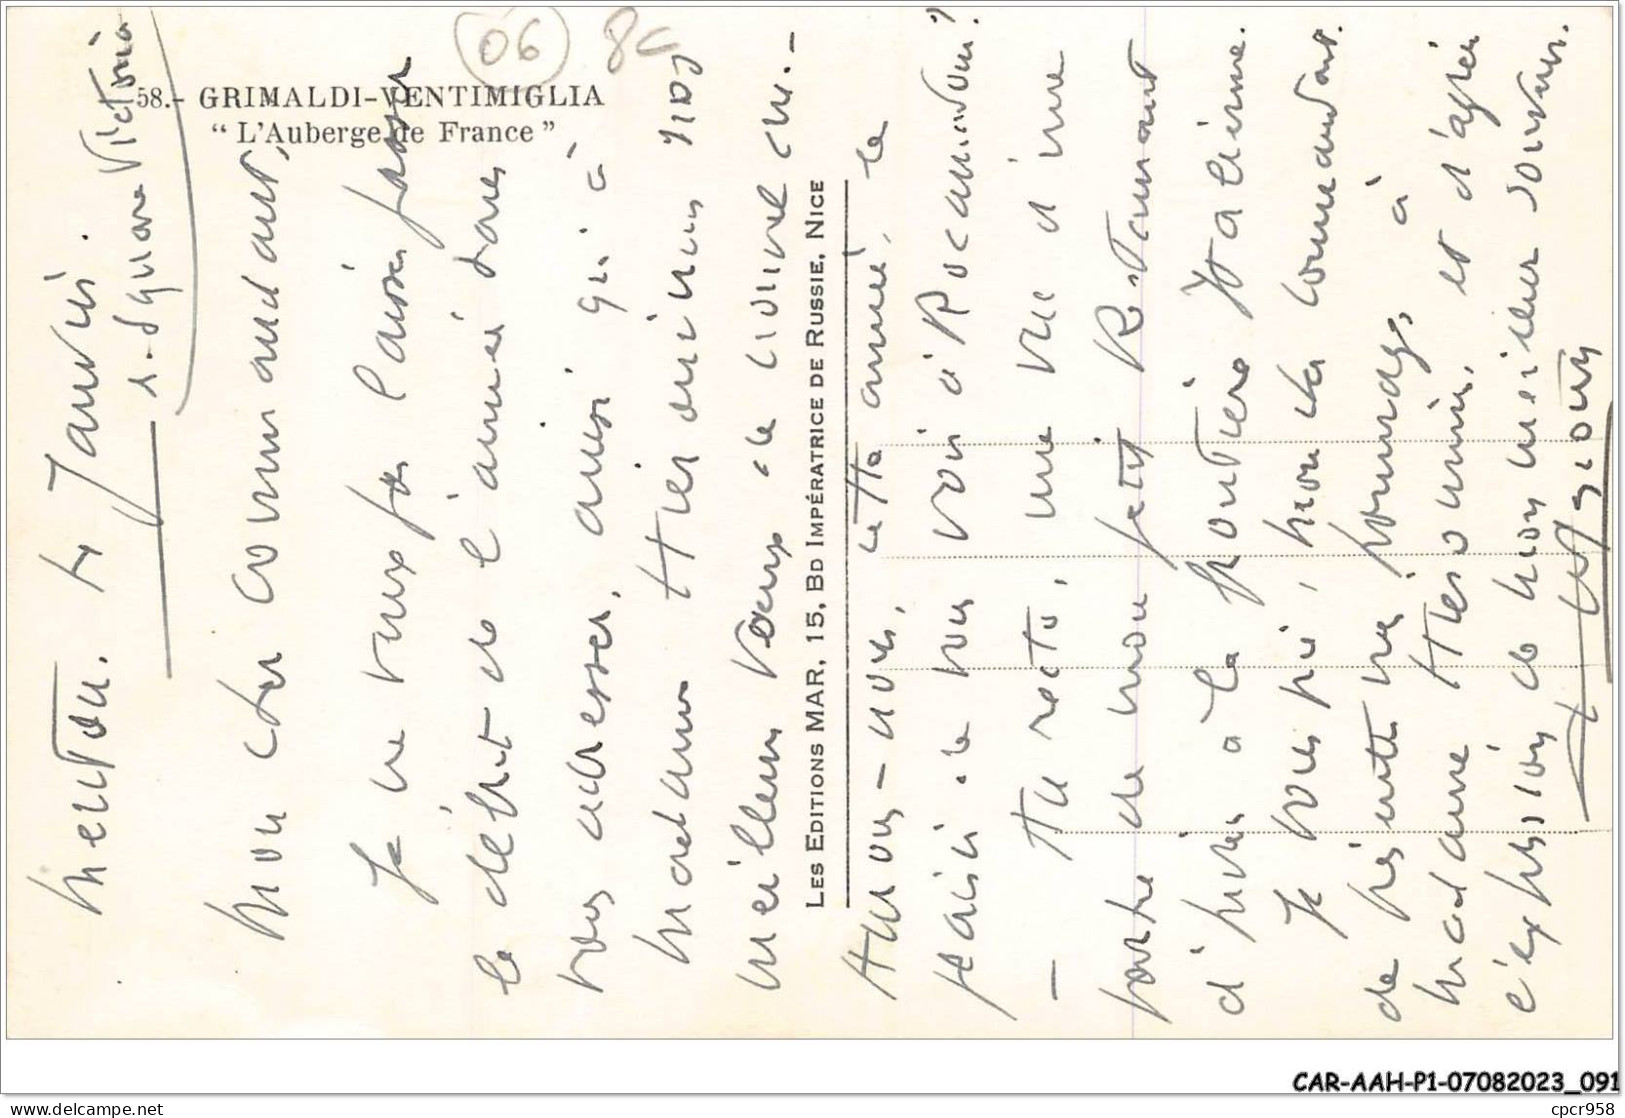 06 8c
58.- GRIMALDI-VENTIMIGLIA
“ L'Auberge de France ”
LES EDITIONS MAR, 15, BD IMPÉRATRICE DE RUSSIE, NICE
Menton. le Janvier.
1. Square Victoria
Mon cher commandant,
Je ne veux pas laisser passer
le début de l'année sans
vous adresser, ainsi qu'à
Madame nos
meilleurs voeux de
Aurons-nous, cette année, le
plaisir de vous voir à Rocamadour?
- Au recto, une vue d'une
porte de mon petit Restaurant
d'hiver à la frontière Italienne.
Je vous prie, mon Commandant.
de présenter mes hommages à
Madame et d'agréer
l'expression de mon meilleur souvenir.
CAR-AAH-P1-07082023_091
delcampe.net
cpcr958